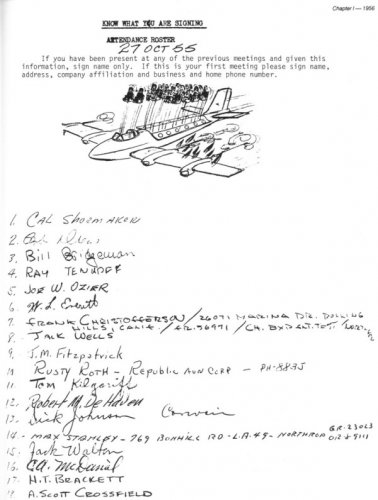 Chapter I — 1956
KNOW WHAT YOU ARE SIGNING
ATTENDANCE ROSTER
27 OCT 55
If you have been present at any of the previous meetings and given this
information, sign name only. If this is your first meeting please sign name,
address, company affiliation and business and home phone number.
1. CAL SHOEMAKER
2.
3. Bill Bridgeman
4. RAY TENHOFF
5. JOE W. OZIER
6. W. L. Everett
7. FRANK CHRISTOFFERSON / 26071 MARINA DR. ROLLING
HILLS, CALIF. / FR. 56971 / CH. EXP. ENT. TST.
8. JACK WELLS
9. J.M. Fitzpatrick
10 RUSTY ROTH - REPUBLIC AVN CORP - PH-8835
11 Tom Kilgariff
12. Robert M. DeHaven
13. Dick Johnson Convair
14. MAX STANLEY - 769 BONHILL RD - L.A. 49 - NORTHROP GR. 23023
OR 89111
15. Jack Walton
16. C.A. McDaniel
17. H.T. BRACKETT
18. A. SCOTT CROSSFIELD